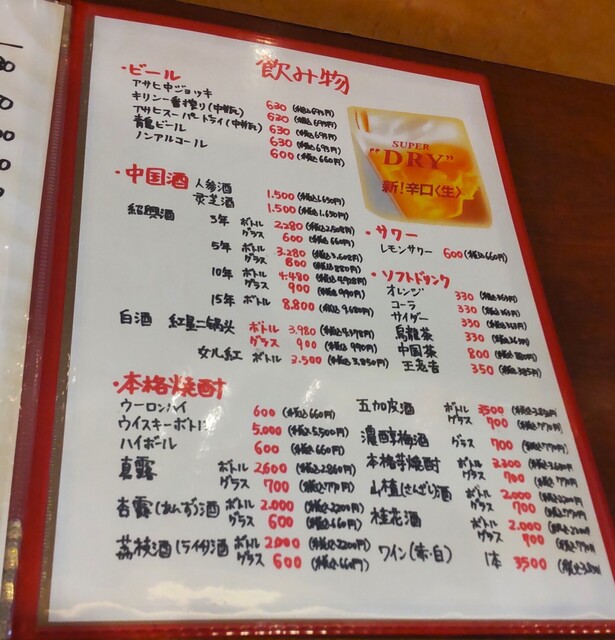 飲み物
・ビール
アサヒ中ジョッキ 630 (税込693円)
キリン一番搾り(中瓶) 630 (税込693円)
アサヒスーパードライ(中瓶) 630 (税込693円)
青島ビール 630 (税込693円)
ノンアルコール 600 (税込660円)
SUPER
"DRY"
新!辛口〈生〉
・中国酒
人参酒 1.500 (税込1.650円)
灵芝酒 1.500 (税込1.650円)
紹興酒 3年 ボトル 2.280 (税込2.508円)
グラス 600 (税込660円)
5年 ボトル 3.280 (税込3.608円)
グラス 800 (税込880円)
10年 ボトル 4.480 (税込4.928円)
グラス 900 (税込990円)
15年 ボトル 8.800 (税込9.680円)
白酒 紅星二锅头 ボトル 3.980 (税込4.378円)
グラス 900 (税込990円)
女儿紅 ボトル 3.500 (税込3,850円)
・サワー
レモンサワー 600 (税込660円)
・ソフトドリンク
オレンジ 330 (税込363円)
コーラ 330 (税込363円)
サイダー 330 (税込363円)
烏龍茶 330 (税込363円)
中国茶 800 (税込880円)
王老吉 350 (税込385円)
・本格焼酎
ウーロンハイ 600 (税込660円)
ウイスキーボトル 5.000 (税込5,500円)
ハイボール 600 (税込660円)
真露 ボトル 2600 (税込2860円)
グラス 700 (税込770円)
杏露(あんず)酒 ボトル 2.000 (税込2200円)
グラス 600 (税込660円)
荔枝酒(ライチ)酒 ボトル 2.000 (税込2200円)
グラス 600 (税込660円)
五加皮酒 ボトル 3500
グラス 700 (税込770円)
濃醇梅酒 グラス 700 (税込770円)
本格芋焼酎 ボトル
グラス 700 (税込770円)
山楂(さんざし)酒 ボトル 2.000 (税込2200円)
グラス 700 (税込770円)
桂花酒 ボトル 2.000 (税込2200円)
グラス 700 (税込770円)
ワイン(赤・白) 1本 3500